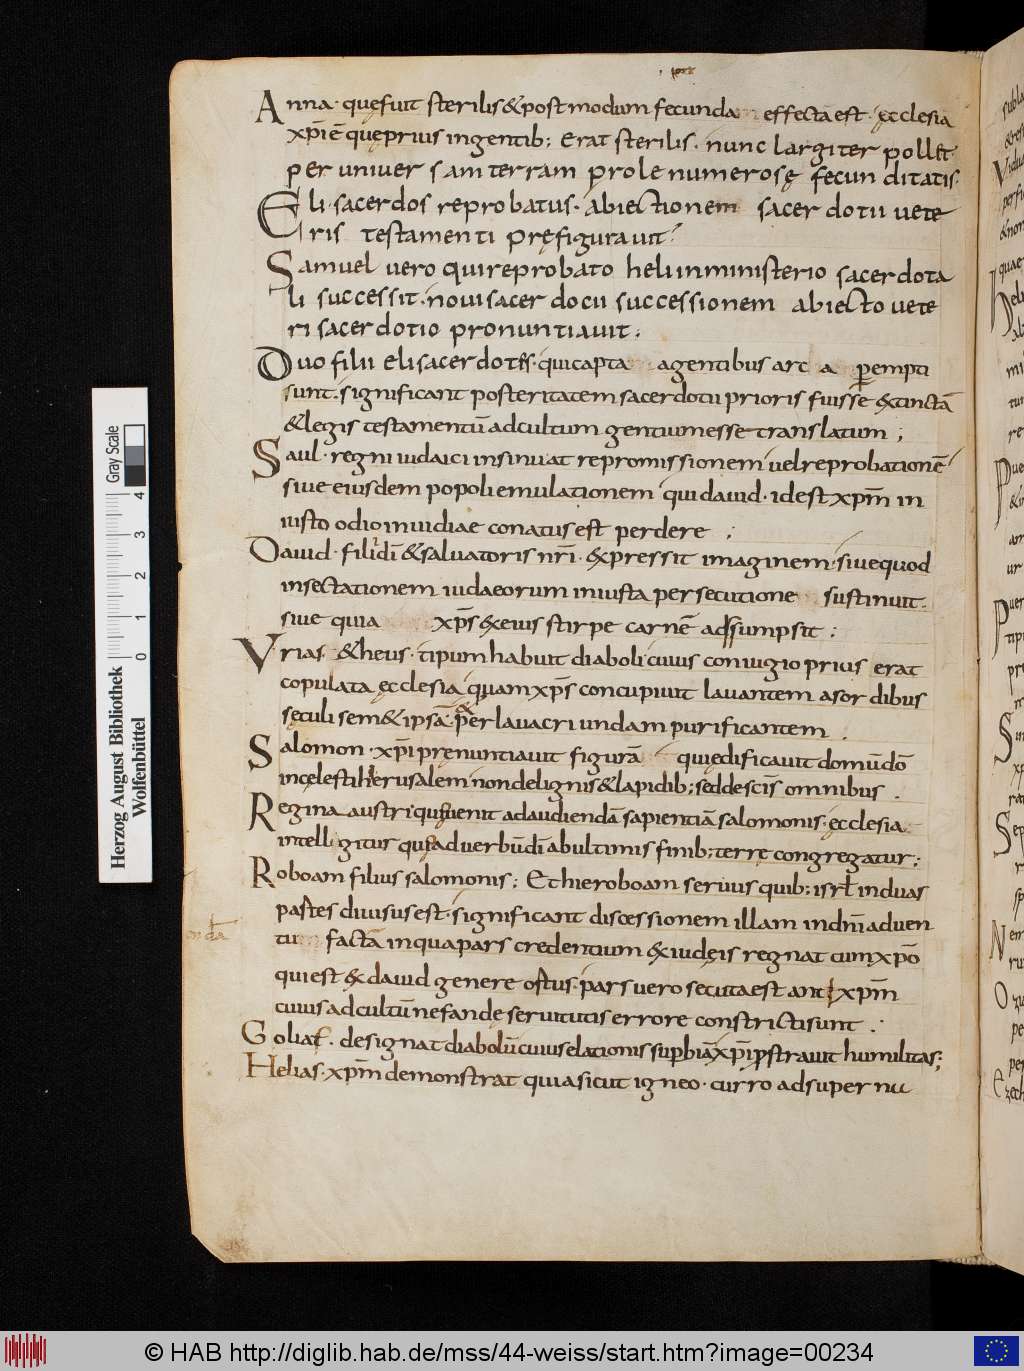 Anna · quęfuit sterilis & postmodum fecunda effecta est · ęcclesia
xp̄i ē quę prius in gentib; erat sterilis · nunc largiter pollet ·
per univer sam terram prole numerosę fecun ditatis ·
Eli · sacerdos reprobatus · abiectionem sacer dotii uete
ris testamenti pręfigurauit ·
Samuel uero qui reprobato heli in ministerio sacerdota
li successit · noui sacer docii successionem abiecto uete
ri sacerdotio pronuntiauit ;
Duo filii eli sacerdotes · qui capta a gentibus arc a perempti
sunt · significant posteritatem sacerdotii prioris fuisse extinctā
& legis testamentū ad cultum gentium esse translatum ;
Saul · regni iudaici insinuat repromissionem uel reprobationē
siue eiusdem popoli emulationem qui dauid · id est xp̄m in
iusto odio inuidiae conatus est perdere ;
Dauid · filii dī & saluatoris nrī · expressit imaginem · siue quod
insectationem iudaeorum iniusta persecutione sustinuit ·
siue quia xp̄s ex eius stirpe carnē adsumpsit ;
Vrias · & heus · tipum habuit diaboli cuius coniugio prius erat
copulata ęcclesia quam xp̄s concupiuit lauantem a sordibus
sęculi semet ipsā · per lauacri undam purificantem ·
Salomon · xp̄i prę nuntiauit figurā qui ędificauit domū dō
in cęlesti hierusalem non de lignis & lapidib; sed de scīs omnibus ·
Regina austri quę uenit ad audiendā sapientiā salomonis · ęcclesia
intelli gitur quę ad uerbū dī ab ultimis finib; terrę congregatur ;
Roboam filius salomonis ; Et hieroboam seruus quib; isrł in duas
partes diuisus est · significant discessionem illam in dnī aduen
tu factā in qua pars credentium ex iudęis regnat cum xpō
qui est ex dauid genere ortus · pars uero secuta est ant xp̄m
cuius ad cultū nefandę seruitutis errore constricti sunt ·
Goliat · designat diabolū cuius elationis superbiā xp̄i prostrauit humilitas ;
Helias · xp̄m demonstrat qui a sicut igneo · curro ad super nu
Herzog August Bibliothek
Wolfenbüttel
0 1 2 3 4
Gray Scale
© HAB http://diglib.hab.de/mss/44-weiss/start.htm?image=00234